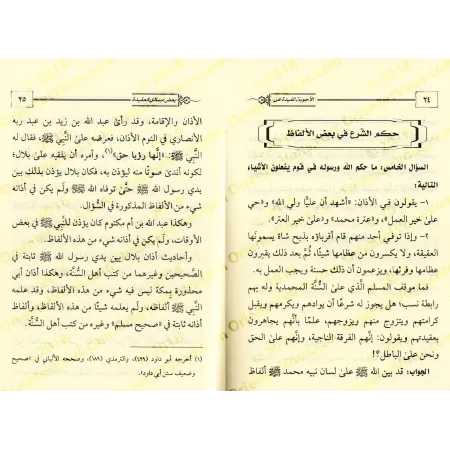 ٢٤
الأجوبة المفيدة عن
حكم الشرع في بعض الألفاظ
السؤال الخامس: ما حكم الله ورسوله في قوم يفعلون الأشياء
التالية:
١- يقولون في الأذان: «أشهد أن عليًّا ولي الله» و«حي
على خير العمل»، و«عترة محمد» و«على خير العتر».
٢- وإذا توفي أحد منهم قام أقرباؤه بذبح شاة يسمونها
العقيقة، ولا يكسرون من عظامها شيئًا، ثُمَّ بعد ذلك يقبرون
عظامها وفرثها، ويزعمون أن ذلك حسنة ويجب العمل به.
فما موقف المسلم الَّذي علىٰ السُّنَّة المحمدية وله بهم
رابطة نسب؛ هل يجوز له شرعًا أن يوادهم ويكرمهم ويقبل
كرامتهم ويتزوج منهم ويزوجهم، علمًا بأنَّهم يجاهرون
بعقيدتهم ويقولون: إنَّهم الفرقة الناجية، وإنَّهم علىٰ الحق
ونحن علىٰ الباطل؟!
الجواب: قد بين الله ﷺ علىٰ لسان نبيه محمد ﷺ ألفاظ
بعض مسائل العقيدة
٢٥
الأذان والإقامة، وقد رأىٰ عبد الله بن زيد بن عبد ربه
الأنصاري في النوم الأذان، فعرضه علىٰ النَّبي ﷺ، فقال له
النَّبي ﷺ: «إنَّها رؤيا حق»(١)، وأمره أن يلقيه علىٰ بلال؛
لكونه أندىٰ صوتًا منه ليؤذن به، فكان بلال يؤذن بذلك بين
يدي رسول الله ﷺ حتَّىٰ توفاه الله ﷺ ولَم يكن في أذانه
شيء من الألفاظ المذكورة في السُّؤال.
وهكذا عبد الله بن أم مكتوم كان يؤذن للنَّبي في بعض
الأوقات، ولَم يكن في أذانه شيء من هذه الألفاظ.
وأحاديث أذان بلال بين يدي رسول الله ﷺ ثابتة في
الصَّحيحين وغيرهما من كتب أهل السُّنَّة، وهكذا أذان أبي
محذورة بمكة ليس فيه شيء من هذه الألفاظ، وقد علمه
النَّبي ﷺ ألفاظه، ولَم يعلمه شيئًا من هذه الألفاظ، وألفاظ
أذانه ثابتة في «صحيح مسلم» وغيره من كتب أهل السُّنَّة.
(١) أخرجه أبو داود (٤٩٩)، والترمذي (١٨٩)، وصححه الألباني في صحيح
وضعيف سنن أبي داود».